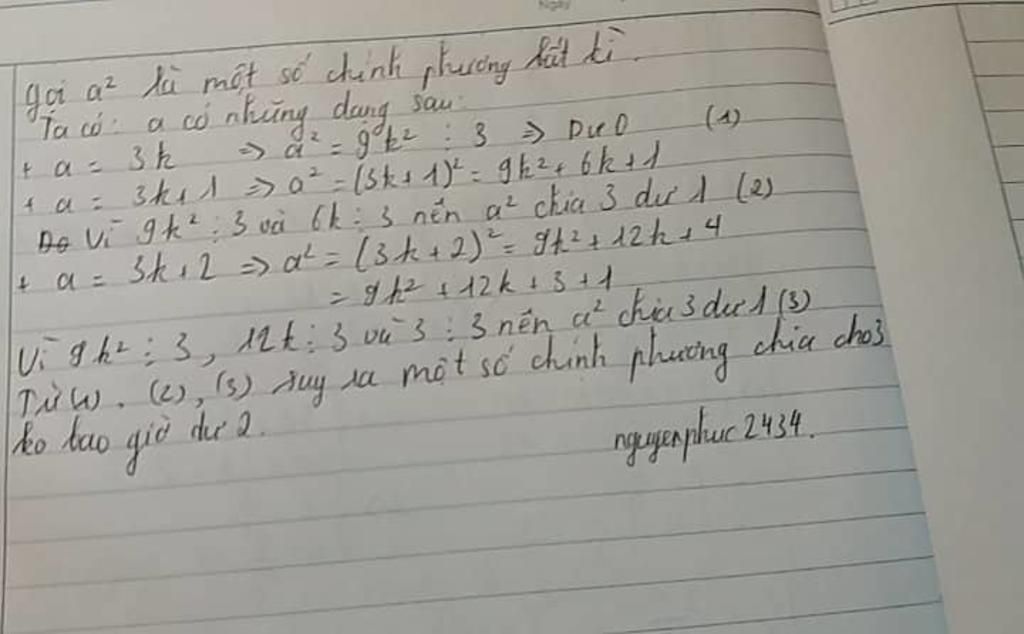 Ngày
gọi a² là một số chính phương bất kì.
Ta có: a có những dạng sau:
+ a = 3k => a² = 9k² ⋮ 3 => Dư 0 (1)
+ a = 3k+1 => a² = (3k+1)² = 9k² + 6k+1
Do Vì 9k² ⋮ 3 và 6k ⋮ 3 nên a² chia 3 dư 1 (2)
+ a = 3k+2 => a² = (3k+2)² = 9k² + 12k + 4
= 9k² + 12k + 3 + 1
Vì 9k² ⋮ 3, 12k ⋮ 3 và 3 ⋮ 3 nên a² chia 3 dư 1 (3)
Từ (1), (2), (3) suy ra một số chính phương chia cho 3
ko bao giờ dư 2.
nguyenphuc2434.